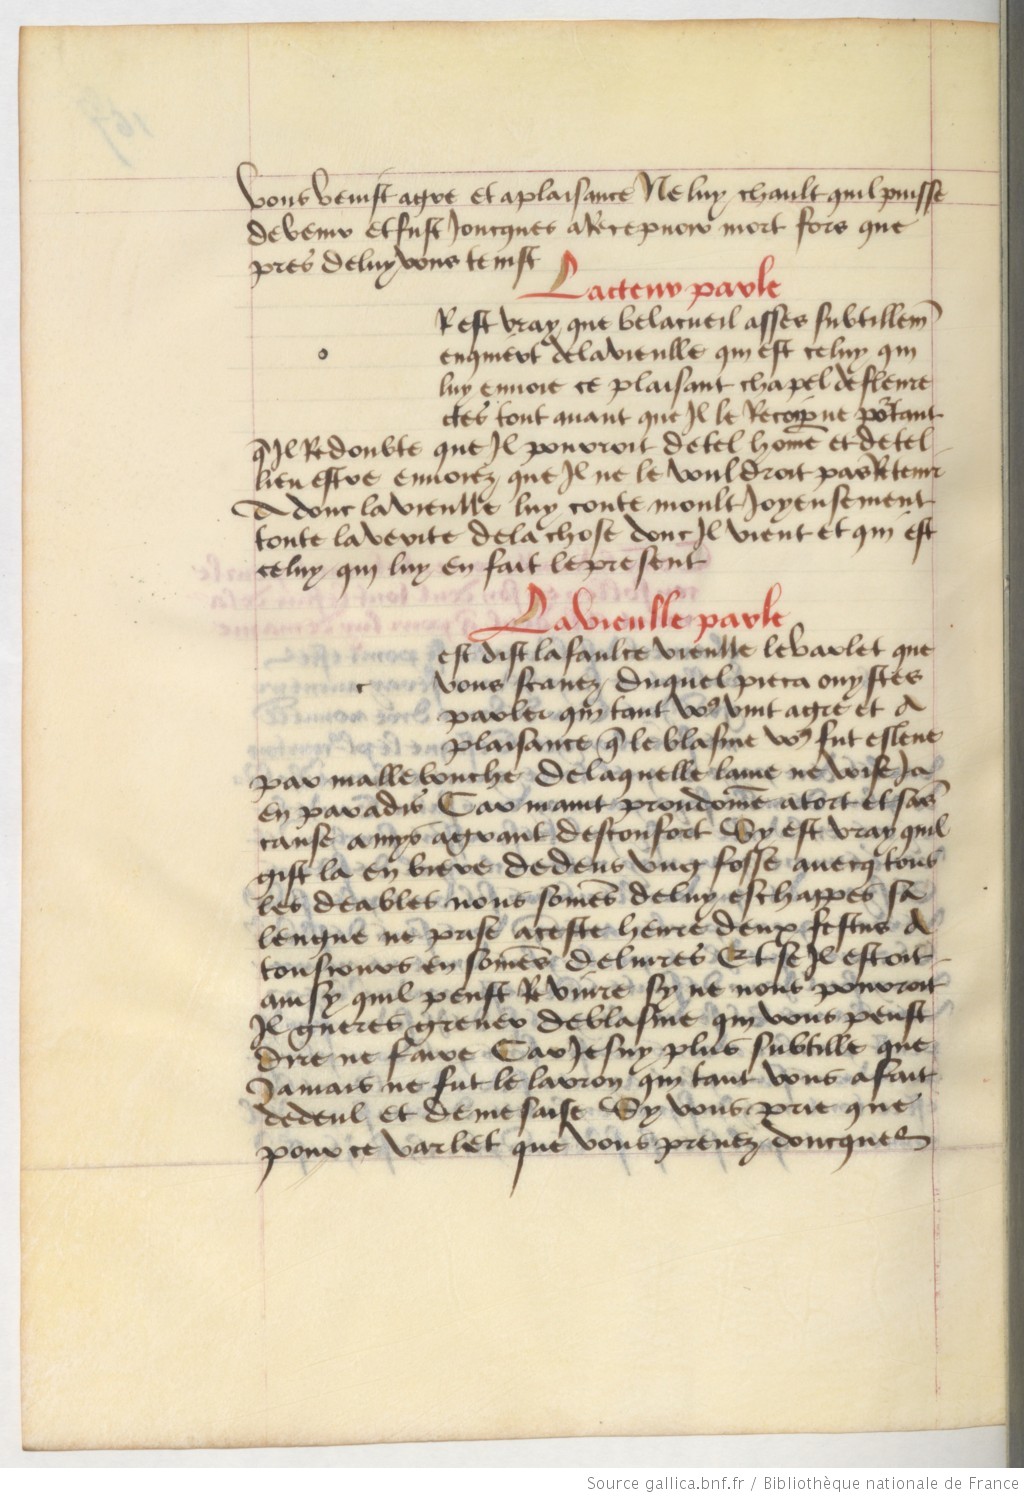 vous venist a gre et a plaisance Ne luy chault quil puisse
devenir et fust Joncques a Recepuoir mort fors que
pres de luy vous tenist
Lacteur parle
R est vray que belacueil asses subtillem̄
o
enquiert de la vieulle qui est celuy qui
luy envoie ce plaisant chapel de fleure
ctes tout auant que Il le Recoipne portant
q̄ Il Redoubte que Il pouroit de tel home et de tel
lieu estre envoiez que Il ne le vouldroit pas Retenir
Adonc la vieulle luy conte moult Joyeusement
toute la verite de la chose donc Il vient et qui est
celuy qui luy en fait le present
La vieulle parle
est dist la faulce vieulle le varlet que
c
vous scauez duquel pieca ouystes
parler qui tant vo9 vint a gre et A
plaisance q̄ le blasme vo9 fut esleue
par malle bouche de laquelle lame ne voise Ja
en paradis Car maint preudomē a tort et sās
cause a mys a grant desconfort Sy est vray quil
gist la en biere dedens vng fosse auecq tous
les deables nous somēs de luy eschappes sa
lengue ne prise a ceste heure deux festus A
tousiours en somēs deliures Et se Il estoit
ainsy quil peust Reuiure sy ne nous pouroit
Il gueres greuer de blasme qui vous peust
dire ne faire Car Je suy plus subtille que
Jamais ne fut le laron qui tant vous a fait
de deul et de mesaise Sy vous prie que
pour ce varlet que vous prenez doncques
Source gallica.bnf.fr / Bibliothèque nationale de France